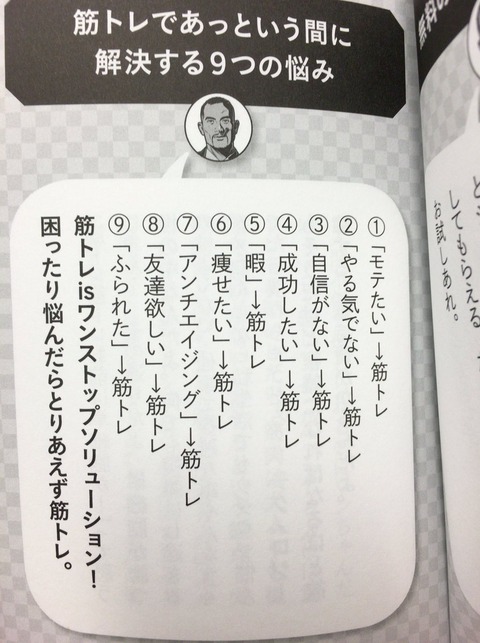 筋トレであっという間に
解決する9つの悩み
①「モテたい」→筋トレ
②「やる気でない」→筋トレ
③「自信がない」→筋トレ
④「成功したい」→筋トレ
⑤「暇」→筋トレ
⑥「痩せたい」→筋トレ
⑦「アンチエイジング」→筋トレ
⑧「友達欲しい」→筋トレ
⑨「ふられた」→筋トレ
筋トレisワンストップソリューション！
困ったり悩んだらとりあえず筋トレ。
無料
してもらえる
お試しあれ。